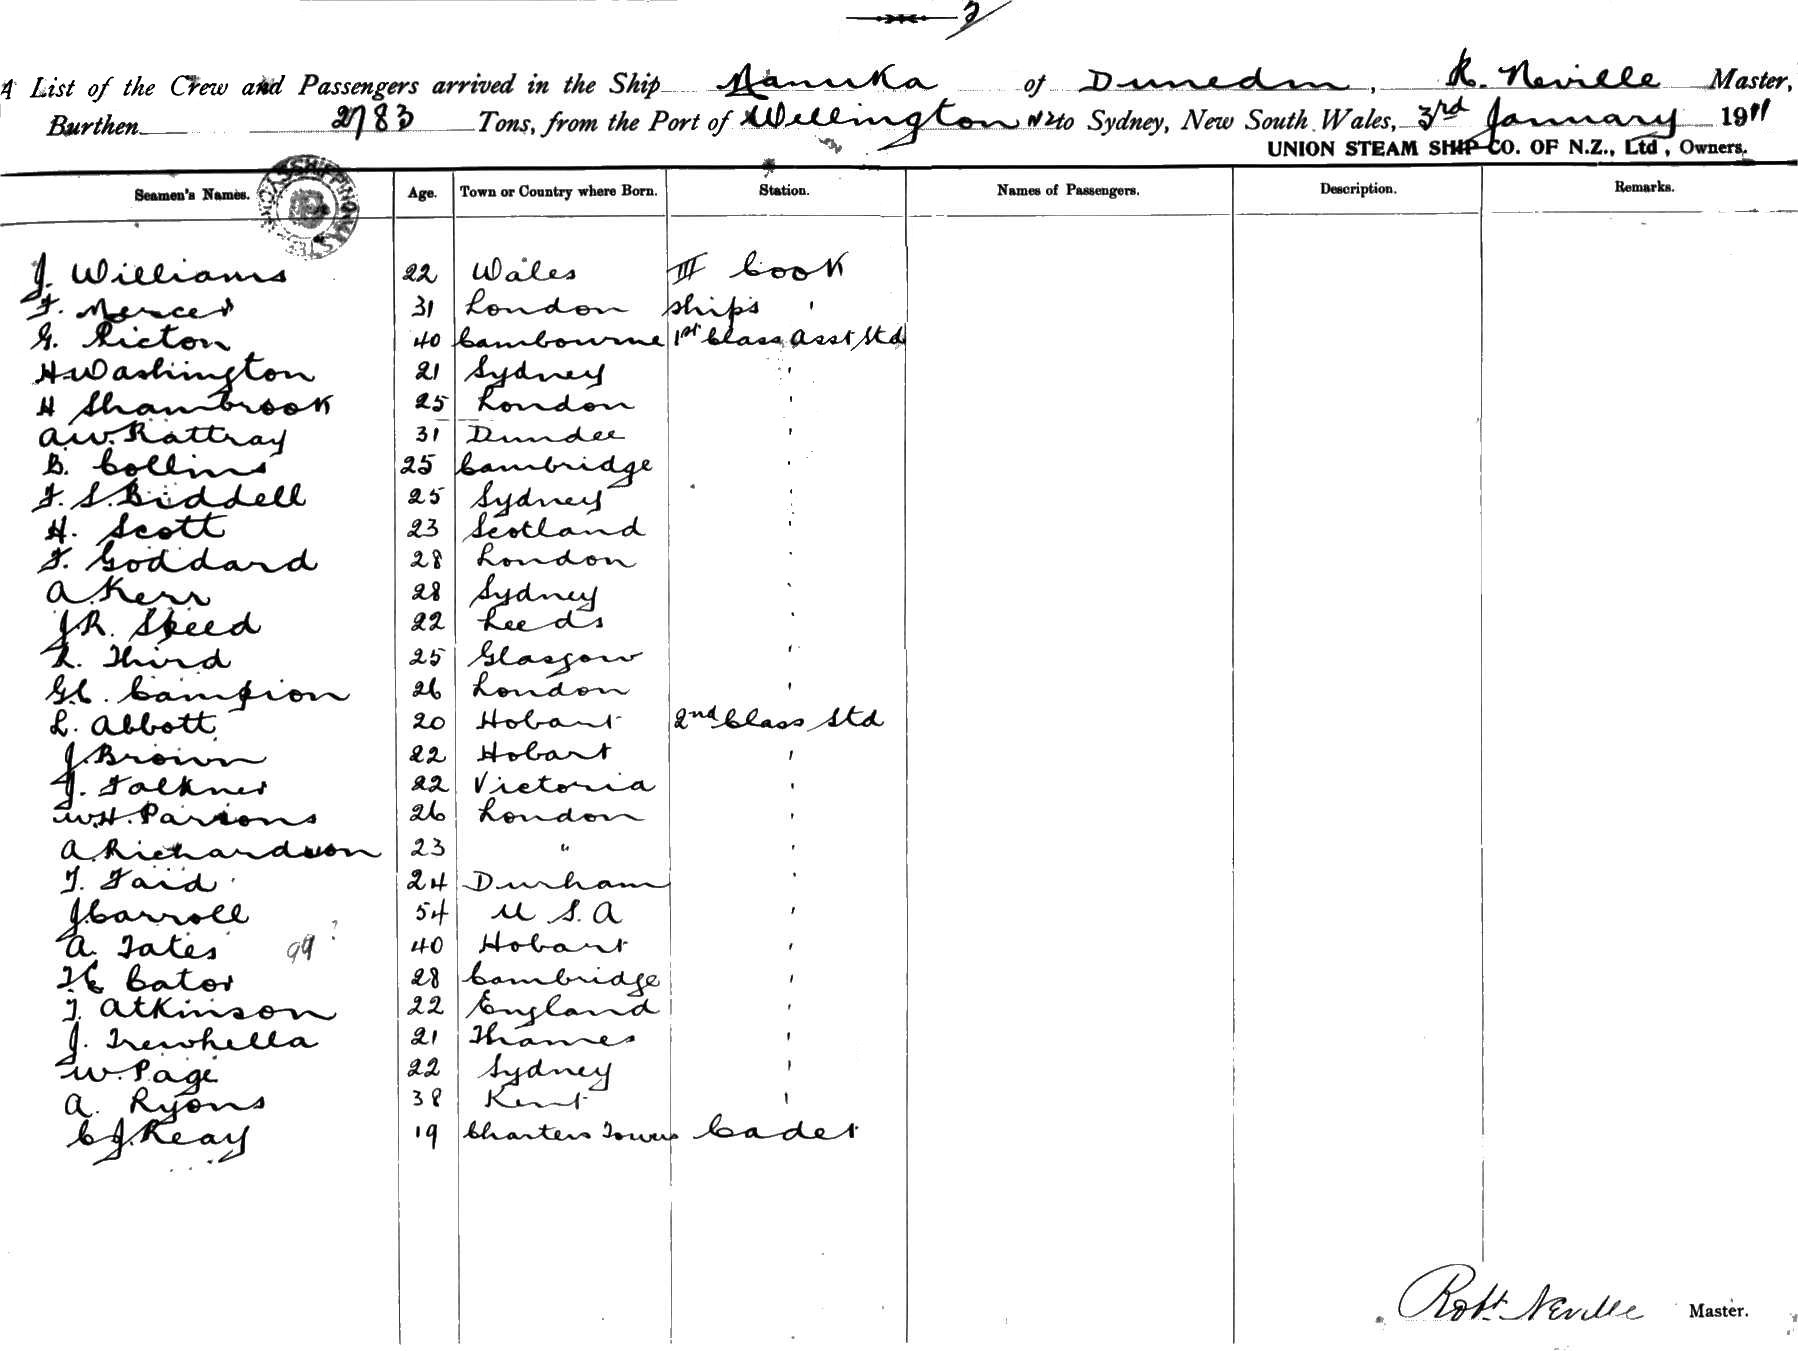 2
A List of the Crew and Passengers arrived in the Ship Manuka of Dunedin, R. Neville Master,
Burthen 2783 Tons, from the Port of Wellington NZ to Sydney, New South Wales, 3rd January 1911
UNION STEAM SHIP CO. OF N.Z., Ltd, Owners.
Seamen's Names. Age. Town or Country where Born. Station. Names of Passengers. Description. Remarks.
J. Williams 22 Wales III Cook
F. Mercer 31 London Ships '
G. Ricton 40 Cambourne 1st Class Asst Std
H Washington 21 Sydney '
H Shambrook 25 London '
A.W. Rattray 31 Dundee '
B. Collins 25 Cambridge '
F. S. Biddell 25 Sydney '
H. Scott 23 Scotland '
F. Goddard 28 London '
A. Kerr 28 Sydney '
J.R. Speed 22 Leeds '
R. Third 25 Glasgow '
G.C. Campion 26 London '
L. Abbott 20 Hobart 2nd Class Std
J. Brown 22 Hobart '
J. Falkner 22 Victoria '
W.H. Parsons 26 London '
A. Richardson 23 " '
T. Faid 24 Durham '
J. Carroll 54 U S. A '
A. Tates 99 ? 40 Hobart '
Cator 28 Cambridge '
T. Atkinson 22 England '
J. Trewhella 21 Thames '
W. Page 22 Sydney '
A. Ryons 38 Kent '
C J. Reay 19 Charters Towers Cadet
Robt. Neville Master.